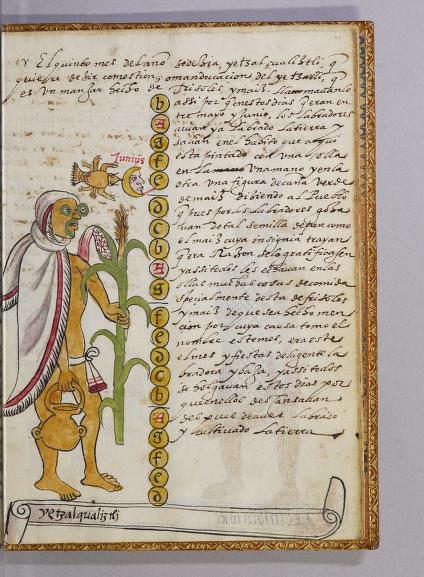 Y El quinto mes del año sedezia, yetzalqualiztli, q
quiere dezir comestion, o manducacion del yetzalli, q
es Un manjar hecho de frisoles, y maiz. llamavanlo
assi por q en estos dias q eran en
tre mayo y Junio, los labradores
avian ya labrado la tierra y
savan en el habito que aqui
esta pintado con una olla
en la Una mano y en la
otra una figura de caña verde
de maiz disiendo al Pueblo
q pues por los labradores goza
van de tal semilla de pan como
el maiz cuya insignia trayan
q era Razon se lo gratificassen
y assi todos les echavan en las
ollas muchas cosas de comida
specialmente desta de frisoles
y maiz de que se a hecho men
cion por cuya causa tomo el
nombre este mes, era este
el mes y fiestas de la gente la
bradora y baxa, y assi todos
se holgavan estos dias por
que en ellos descansavan
despues de aver labrado
y cultivado la tierra
Junius
b
A
g
f
e
d
c
b
A
g
f
e
d
c
b
A
g
f
e
d
yetzalqualiztli